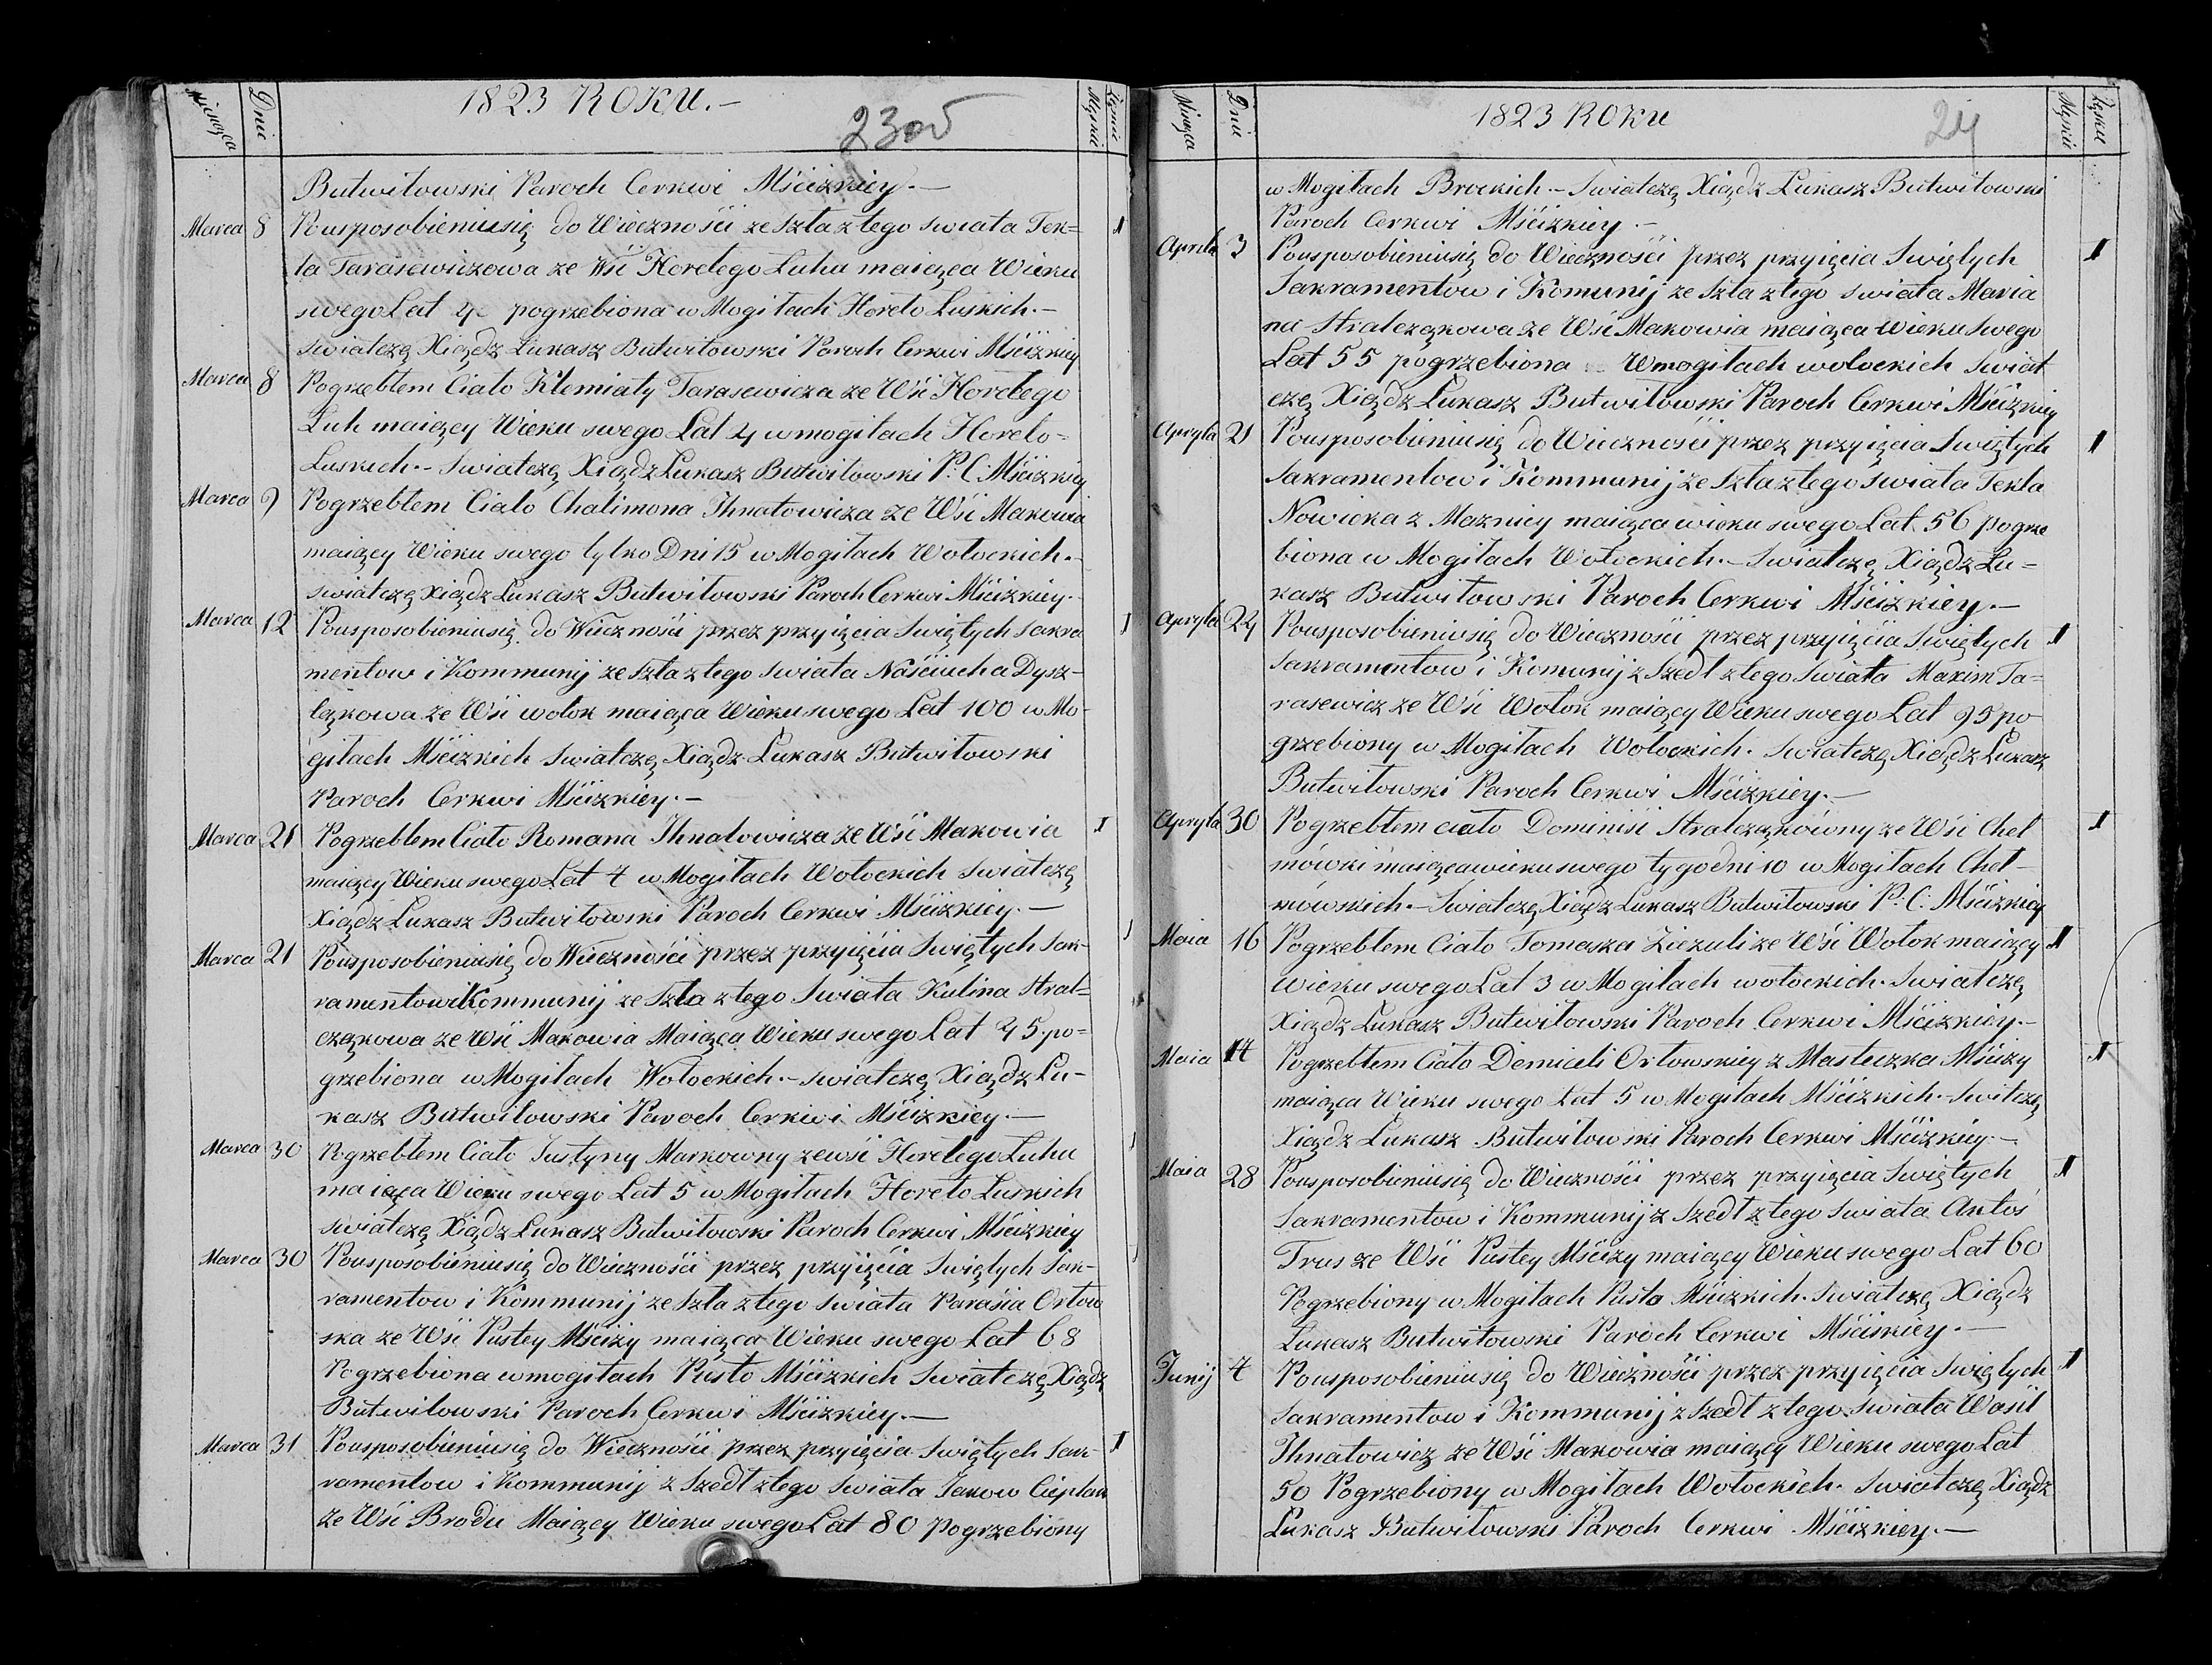 Miesiąca
Dnie
1823 ROKU.-
Męskie
Żeńskie
Butwiłowski Paroch Cerkwi Mścizkiey.-
Marca 8 Pousposobieniusię do Wieczności ze szła z tego swiata Tek=
ła Tarasewiczowa ze Wśi Horełego Łuha maiąca Wieku
swego Lat 4 pogrzebiona w Mogiłach Horeło Łuskich.-
swiatczę Xiądz Łukasz Butwiłowski Paroch Cerkwi Mścizkiey
Marca 8 Pogrzebłem Ciało Klemiaty Tarasewicza ze Wśi Horełego
Łuh maiący Wieku swego Lat 4 w mogiłach Horeło=
Łuskich.- Swiatczę Xiądz Łukasz Butwiłowski P. C. Mścizkiey
Marca 9 Pogrzebłem Ciało Chalimona Ihnatowicza ze Wśi Makowia
maiący Wieku swego tylko Dni 15 w Mogiłach Wołockich.-
swiatczę Xiądz Łukasz Butwiłowski Paroch Cerkwi Mścizkiey.
Marca 12 Pousposobieniusię do Wieczności przez przyięcia Swiętych Sakra
mentow i Kommunij ze szła z tego swiata Naściucha Dysz=
lązkowa ze Wśi wołok maiąca Wieku swego Lat 100 w Mo-
giłach Mścizkich Swiatczę Xiądz Łukasz Butwiłowski
Paroch Cerkwi Mścizkiey.-
Marca 21 Pogrzebłem Ciało Romana Ihnatowicza ze Wśi Makowia
maiący Wieku swego Lat 4 w Mogiłach Wołockich Swiatczę
Xiądz Łukasz Butwiłowski Paroch Cerkwi Mścizkiey.-
Marca 21 Pousposobieniusię do Wieczności przez przyięcia Swiętych Sak-
ramentow i Kommunij ze szła z tego Swiata Kulina Stral=
czązkowa ze Wśi Makowia Maiąca Wieku swego Lat 45 po=
grzebiona w Mogiłach Wołockich.- swiatczę Xiądz Łu-
kasz Butwiłowski Paroch Cerkwi Mścizkiey.-
Marca 30 Pogrzebłem Ciało Justyny Markowny ze wśi Horełego Łuhu
maiąca Wieku swego Lat 5 w Mogiłach Horeło Łuskich
swiatczę Xiądz Łukasz Butwiłowski Paroch Cerkwi Mścizkiey
Marca 30 Pousposobieniusię do Wieczności przez przyięcia Swiętych Sak-
ramentow i Kommunij ze szła z tego swiata Paraśia Orłow
ska ze Wśi Pustey Mściży maiąca Wieku swego Lat 68
Pogrzebiona w mogiłach Pusto Mścizkich Swiatczę Xiądz
Butwiłowski Paroch Cerkwi Mścizkiey.-
Marca 31 Pousposobieniusię do Wieczności przez przyięcia Swiętych Sak-
ramentow i Kommunij z szedł z tego Swiata Jakow Cieplak
ze Wśi Brodu Maiący Wieku swego Lat 80 Pogrzebiony
Miesiąca
Dnie
1823 ROKU
24
Męskie
Żęskie
w Mogiłach Brockich.- Swiatczę Xiądz Łukasz Butwiłowski
Paroch Cerkwi Mścizkiey.-
Apryla 3 Pousposobieniusię do Wieczności przez przyięcia Swiętych
Sakramentow i Komunij ze szła z tego swiata Maria
na Stralczązkowa ze Wśi Makowia maiąca wieku swego
Lat 55 pogrzebiona W mogiłach wołockich Swiat
czę Xiądz Łukasz Butwiłowski Paroch Cerkwi Mścizkiey
Apryla 21 Pousposobieniusię do Wieczności przez przyięcia Swiętych
Sakramentow i Kommunij ze szła z tego Swiata Tekla
Nowicka z Maznicy maiąca wieku swego Lat 56 pogrze
biona w Mogiłach Wołockich.- Swiatczę Xiądz Łu-
kasz Butwiłowski Paroch Cerkwi Mścizkiey.-
Apryla 24 Pousposobieniusię do Wieczności przez przyięcia Swiętych
Sakramentow i Komunij z szedł z tego Swiata Maxim Ta=
rasewicz ze Wśi Wołok maiący Wieku swego Lat 95 po
grzebiony w Mogiłach Wołockich. Swiatczę Xiądz Łukasz
Butwiłowski Paroch Cerkwi Mścizkiey.-
Apryla 30 Pogrzebłem ciało Dominisi Stralczązkówny ze Wśi Cheł
mówki maiąca wieku swego tygodni 10 w Mogiłach Cheł-
mówskich.- Swiatczę Xiądz Łukasz Butwiłowski P. C. Mścizkiey
Maia 16 Pogrzebłem Ciało Tomasza Ziezuli ze Wśi Wołok maiący
Wieku swego Lat 3 w Mogiłach wołockich. Swiatczę
Xiądz Łukasz Butwiłowski Paroch Cerkwi Mścizkiey.-
Maia 17 Pogrzebłem Ciało Demiceli Orłowskiey z Masteczka Mściży
maiąca Wieku swego Lat 5 w Mogiłach Mścizkich.- Switczę
Xiądz Łukasz Butwiłowski Paroch Cerkwi Mścizkiey.-
Maia 28 Pousposobieniusię do Wieczności przez przyięcia Swiętych
Sakramentow i Kommunij z szedł z tego Swiata Antoś
Trus ze Wśi Pustey Mściży maiący Wieku swego Lat 60
Pogrzebiony w Mogiłach Pusto Mścizkich. Swiatczę Xiądz
Łukasz Butwiłowski Paroch Cerkwi Mściskiey.-
Junij 4 Pousposobieniusię do Wieczności przez przyięcia Swiętych
Sakramentow i Kommunij z szedł z tego Swiata Wasil
Ihnatowicz ze Wśi Makowia maiący Wieku swego Lat
50 Pogrzebiony w Mogiłach Wołockich. Swiatczę Xiądz
Łukasz Butwiłowski Paroch Cerkwi Mścizkiey.-